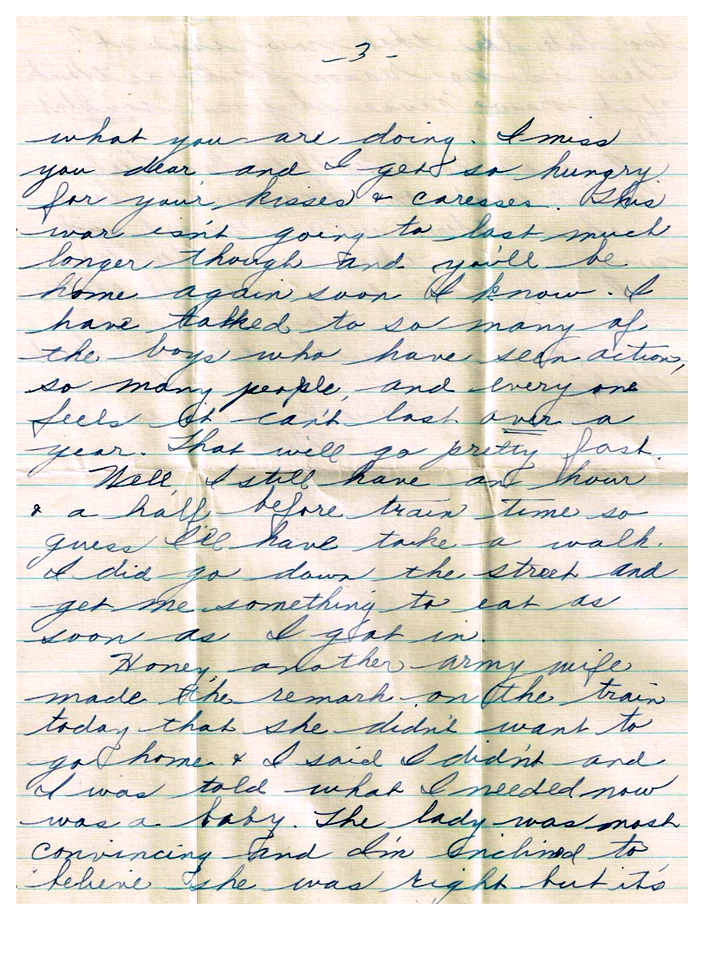 -3-
what you are doing. I miss
you dear and I get so hungry
for your kisses & caresses. This
war isn't going to last much
longer though and you'll be
home again soon I know. I
have talked to so many of
the boys who have seen action,
so many people, and every one
feels it can't last over a
year. That will go pretty fast.
Well, I still have an hour
& a half before train time so
guess I'll have take a walk.
I did go down the street and
get me something to eat as
soon as I got in.
Honey, another army wife
made the remark on the train
today that she didn't want to
go home & I said I didn't and
I was told what I needed now
was a baby. The lady was most
convincing and I'm inclined to
believe she was right but it's